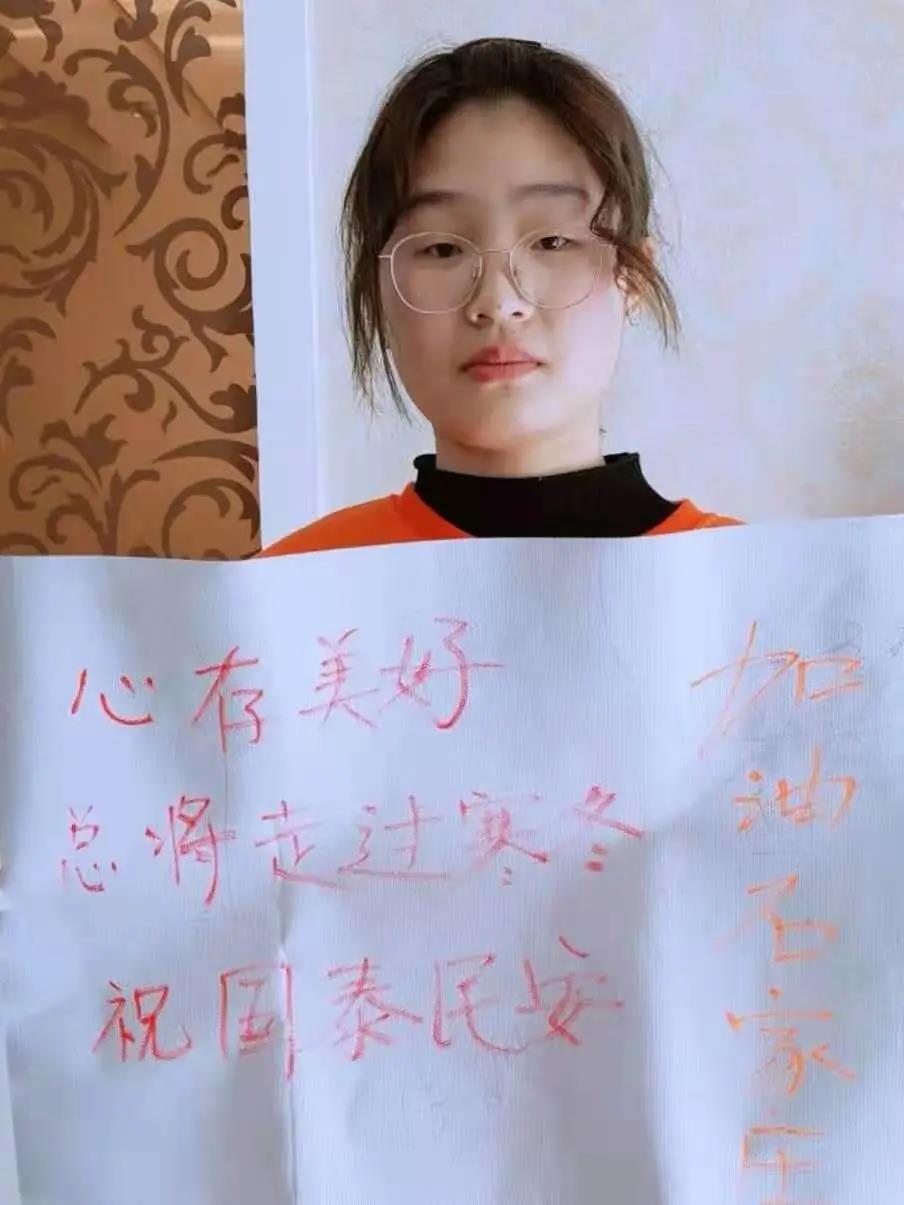 心存美好
总将走过寒冬
祝国泰民安
加油石家庄